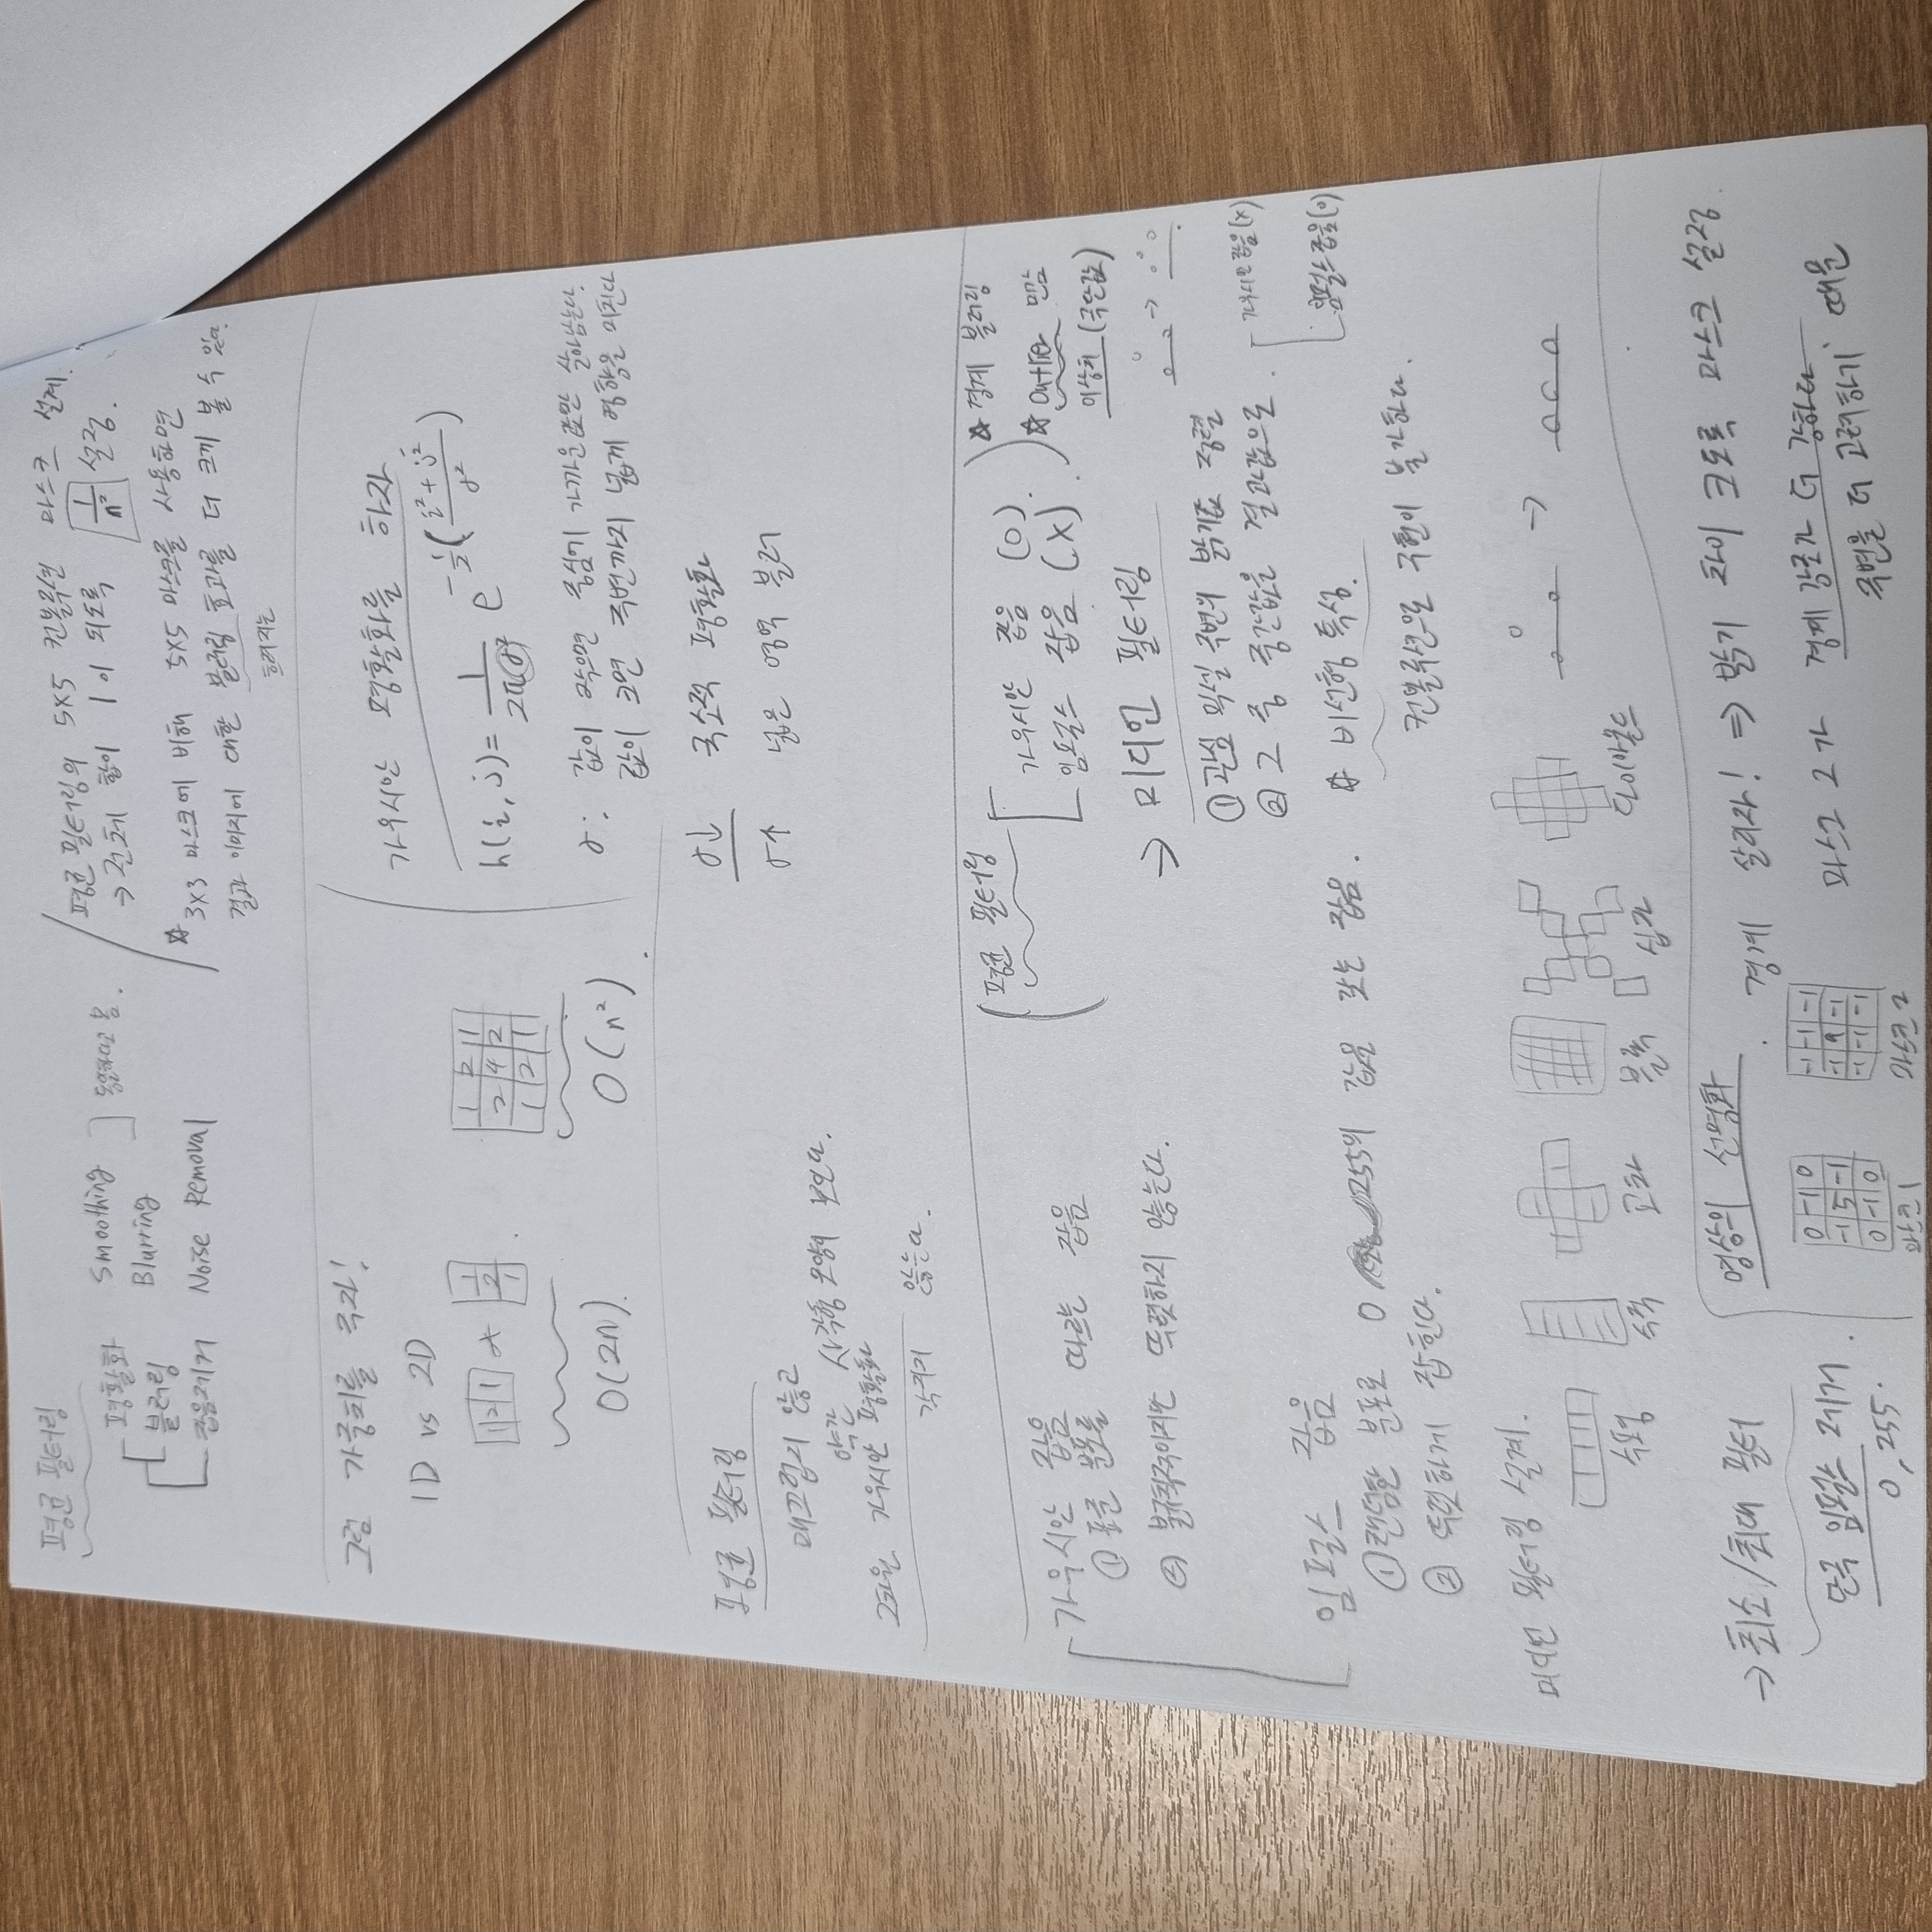 평균 필터링
평활화 Smoothing
블러링 Blurring
동일하다고 봄.
잡음제거 Noise Removal
평균 필터링의 5X5 컨볼루션 마스크 설계.
→ 전체 합이 1이 되도록 1/n² 설정.
☆ 3X3 마스크에 비해 5X5 마스크를 사용하면
결과 이미지에 대한 블러링 효과를 더 크게 볼 수 있다.
흐려지는
그럼 가중치를 주자!
1D vs 2D
1 2 1 * 1 2 1
1 2 1
2 4 2
1 2 1
O(2n). O(n²).
가우시안 평활화를 하자
h(i, j) = 1/2πσ² e^-1/2(i²+j²/σ²)
σ: 값이 작으면 중심에 가까운 값만 살아남는다.
값이 크면 주변까지 넓게 영향을 미친다
σ↓ 국소적 평활화
σ↑ 넓은 영역 블러
평균 필터링
매끄럽지 않고
약간 사각형 모양이 보인다.
2차원 가우시안 평활화
각지지 않는다.
가우시안 잡음
① 표준 분포를 따르는 잡음
② 불규칙적이지만 뚜렷하지 않는다.
임펄스 잡음
① 랜덤한 분포로 0 255의 값을 갖는 잡음.
② 뚜렷하게 잡힌다.
(평균 필터링
가우시안 잡음 (O).
임펄스 잡음 (X).)
☆ 경계 블러링
☆ 민감
이상치 (극단값)
→ 미디언 필터링
① 관심 픽셀 주변의 밝기값 정렬
② 그 중 중간값을 결과값으로.
가우시안 잡음(X)
임펄스 잡음(O)
☆ 비선형 특성.
컨볼루션으로 구현이 불가하다.
미디언 필터링 설계.
수평 수직 교차 블록 십자 다이아몬드
→ 최소/최대 필터
단극 임펄스 제거.
0, 255.
영상의 선명화
경계 살리자! ⇒ 밝기 차이 크도록 마스크 설정.
0 -1 0
-1 5 -1
0 -1 0
마스크 1
-1 -1 -1
-1 9 -1
-1 -1 -1
마스크 2
마스크 2가 경계 강조가 더 강하다
주변을 더 고려하기 때문